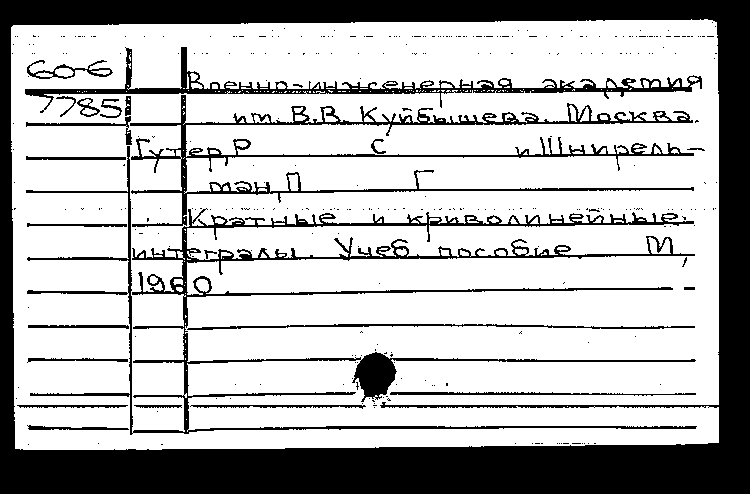 60-6
7785
Военно-инженерная академия
им. В.В. Куйбышева. Москва.
Гутер, Р С и Шнирель-
ман, П Г
Кратные и криволинейные
интегралы. Учеб. пособие. М,
1960.